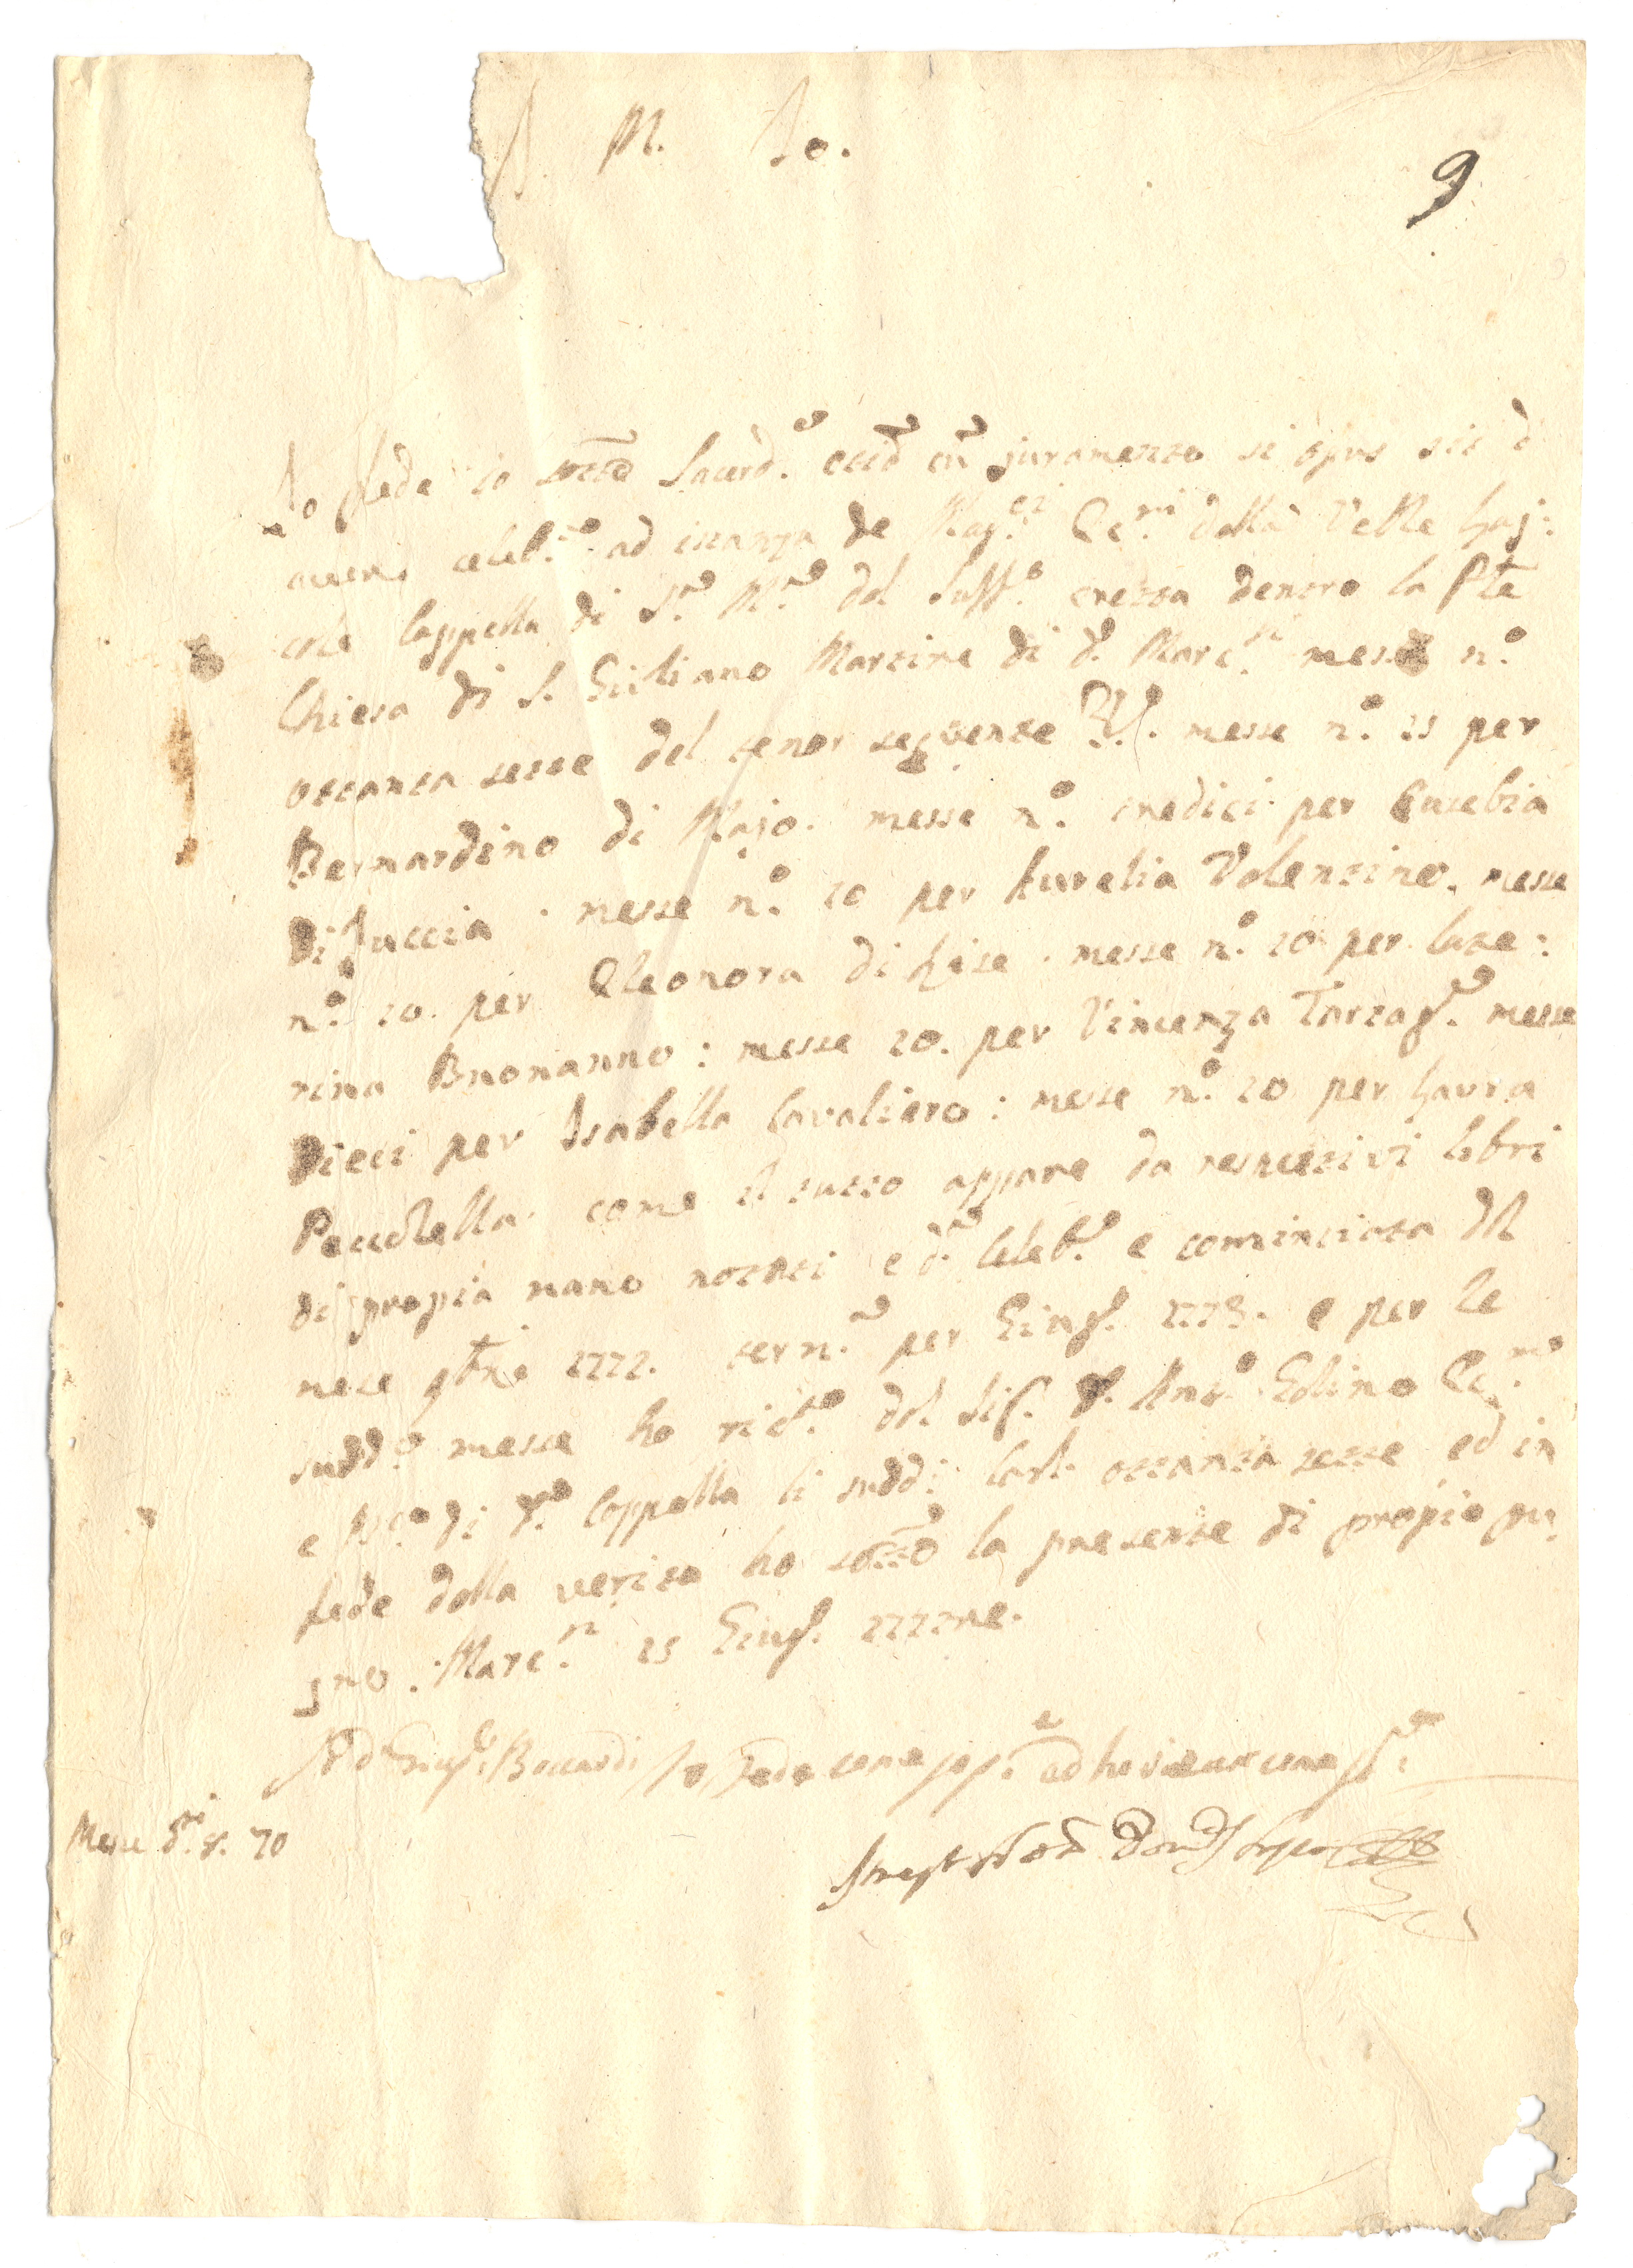 M. Io.
9
Io fede io sotto Sacerd.e etiā cū juramento si opus sit d'
avere celeb.to ad istanza de Mag.ci Ec.mi della Ven.le Laj:
cale Cappella di S.ta M.a del Suff.o eretta dentro la P.te
Chiesa di S. Giuliano Martire di d.o Marc.si messe n.o
ottanta sette del tenor seguente messe n.o 25 per
Bernardino di Majo. messe n.o tredici per Eusebia
di Juccia. messe n.o 10 per Aurelia Volentino. messe
n.o 10. per Eleonora di Lise. messe n.o 10 per Cate:
rina Buonanno: messe 10. per Vincenza Tartag.a messe
Dieci per Isabella Cavaliero: messe n.o 10 per Laura
Pecorella. come il tutto appare da respettivi libri
di propia mano notati e d.a Celeb.e e cominciata dal
mese 9bre 1772. term.a per Giug. 1773. e per le
sudd.e messe ho ric.to dal Sig. D. Ant.o Golino Ec.mo
e di d.a Cappella li sudd.i Carl. ottanta sette ed in
fede della verità ho sotto la presente di propio pu:
gno. Marc.si 25 Giug. 1773
D. Gius.e Boccardi fo fede come sop.a
Messe d.i 70